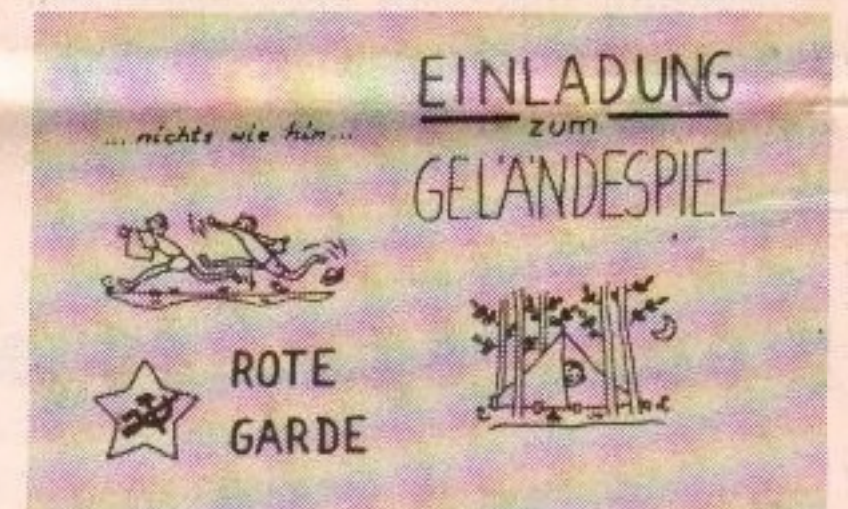 ... nichts wie hin ...
EINLADUNG
zum
GELÄNDESPIEL
ROTE
GARDE